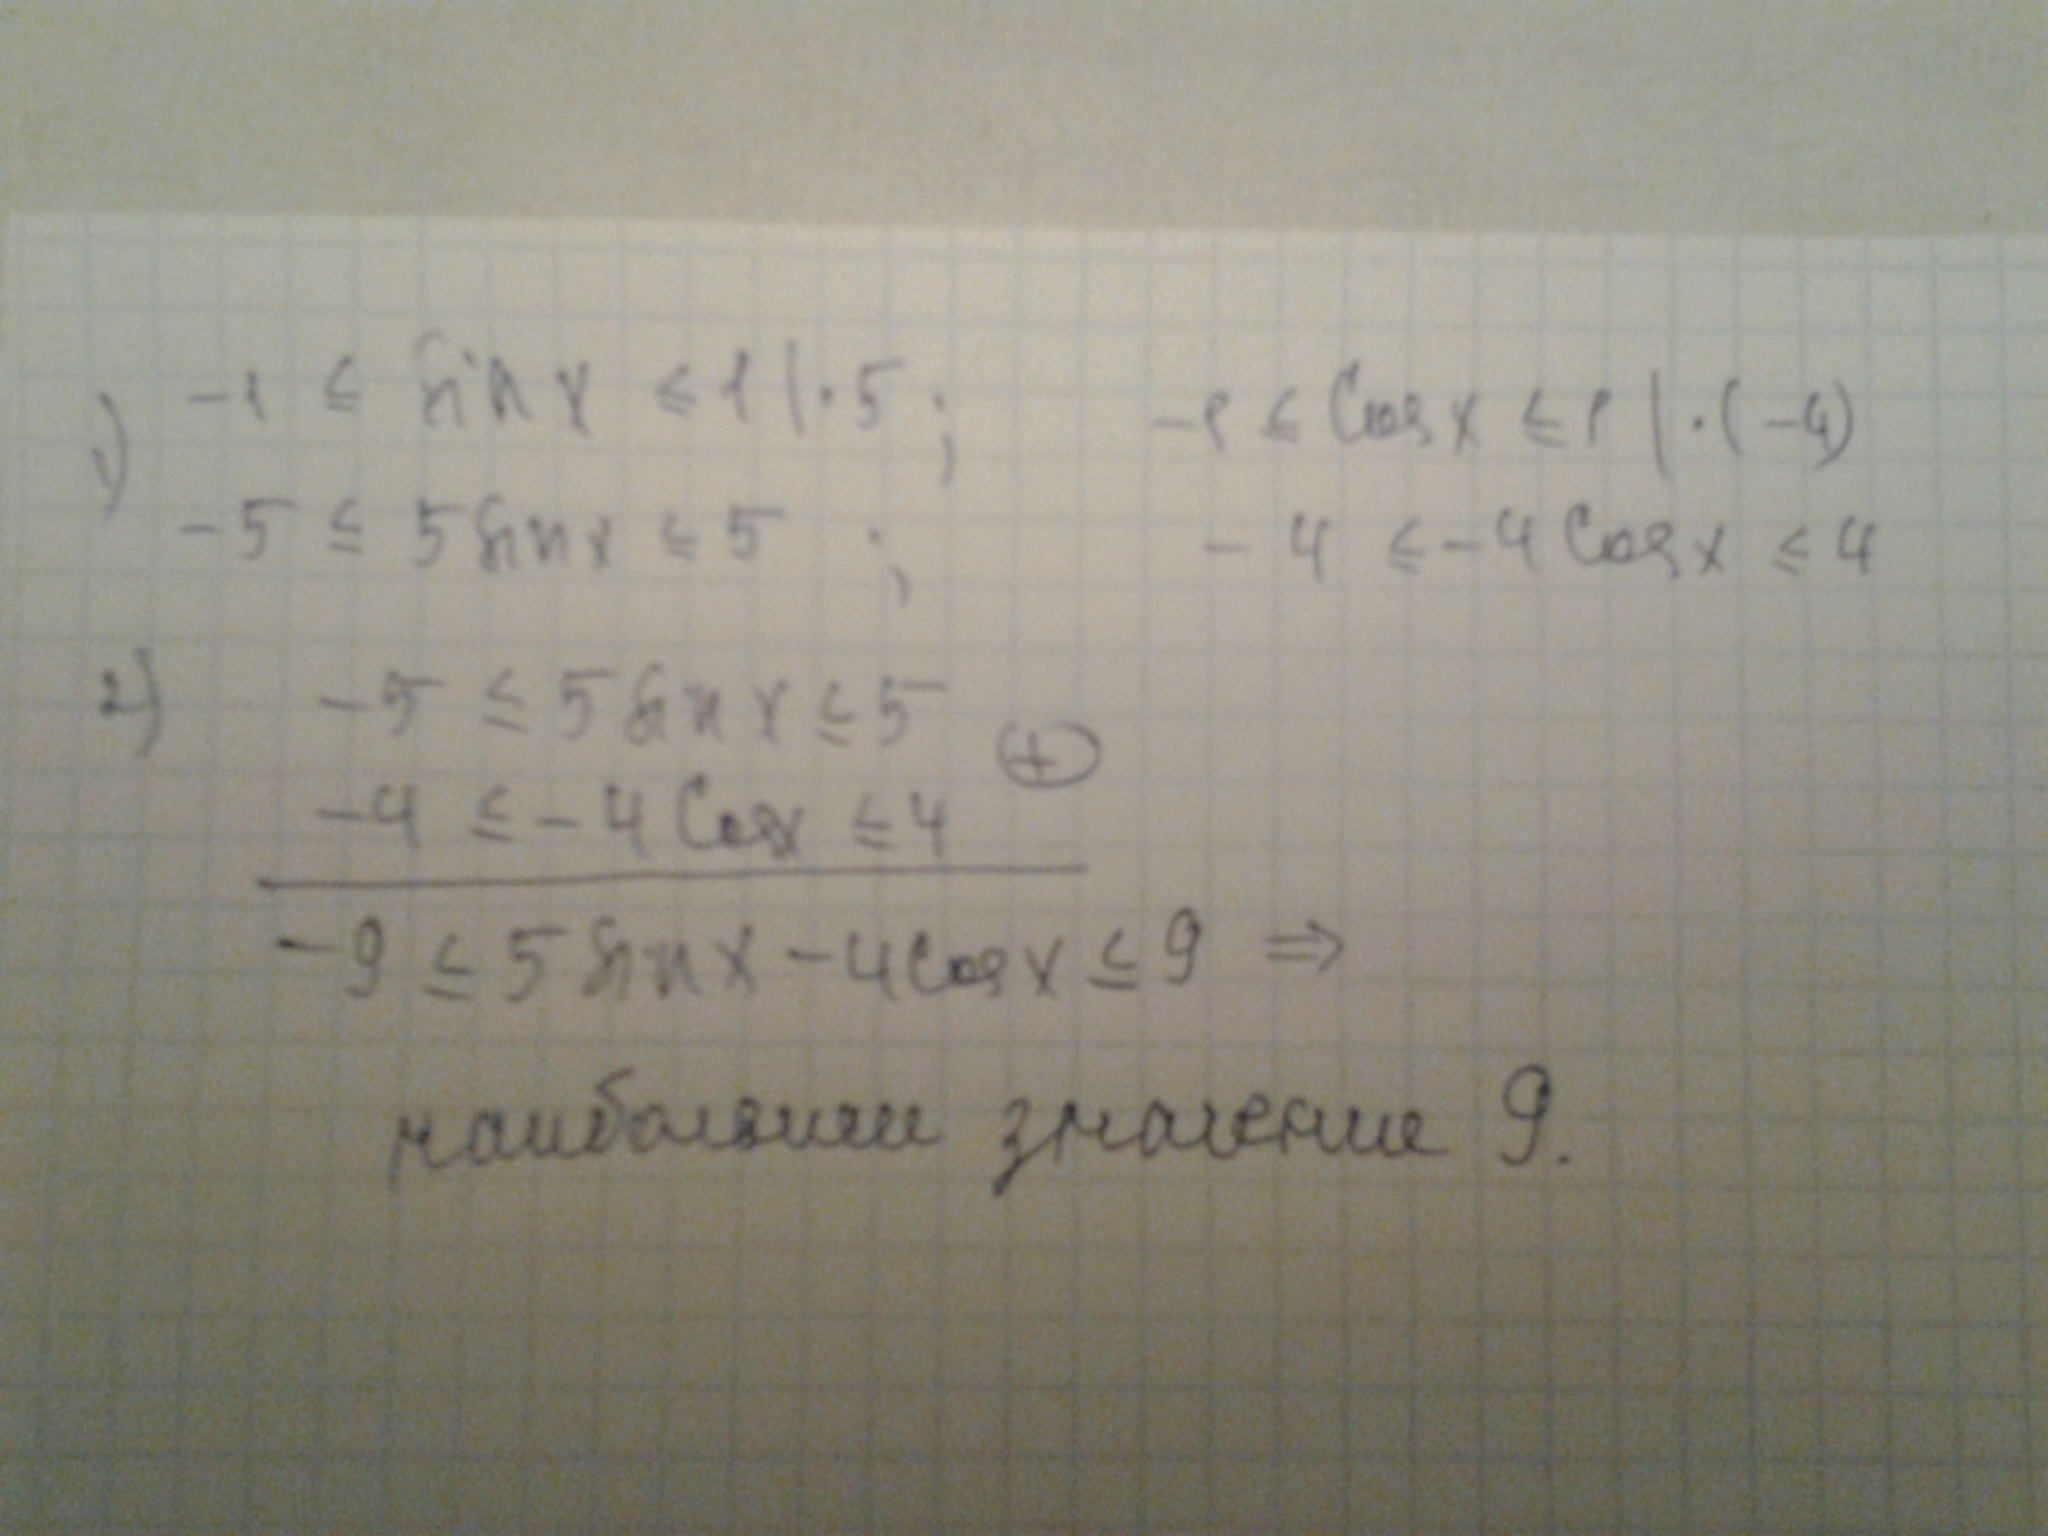 1) -1 ≤ sin x ≤ 1 | · 5 ; -1 ≤ Cos x ≤ 1 | · (-4)
-5 ≤ 5 sin x ≤ 5 ; -4 ≤ -4 Cos x ≤ 4
2) -5 ≤ 5 sin x ≤ 5
+
-4 ≤ -4 Cos x ≤ 4
-9 ≤ 5 sin x - 4 cos x ≤ 9 ⇒
наибольшее значение 9.